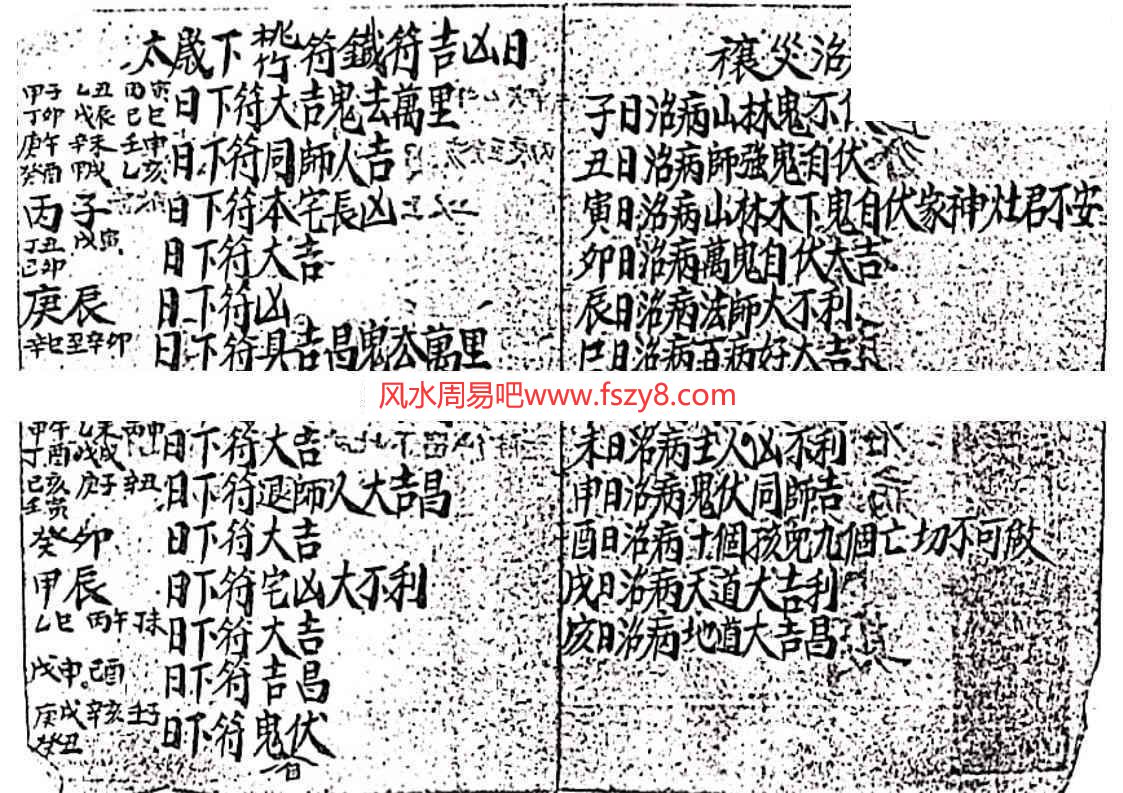 太歲下桃竹符鐵符吉凶日
甲子 乙丑 丙寅
丁卯 戊辰 己巳
日下符大吉鬼去萬里
庚午 辛未 壬申
癸酉 甲戌 乙亥
日下符同師人吉
丙子
日下符本宅長凶
丁丑 戊寅
己卯
日下符大吉
庚辰
日下符凶
辛巳至辛卯
日下符具吉昌鬼去萬里
风水周易吧www.fszy8.com
甲午 乙未 丙申
丁酉 戊戌
日下符大吉
己亥 庚子 辛丑
壬寅
日下符退師人大吉昌
癸卯
日下符大吉
甲辰
日下符宅凶大不利
乙巳 丙午 丁未
日下符大吉
戊申 己酉
日下符吉昌
庚戌 辛亥 壬子
癸丑
日下符鬼伏
禳災治
子日治病山林鬼不
丑日治病師強鬼自伏
寅日治病山林木下鬼自伏家神灶君不安
卯日治病萬鬼自伏大吉
辰日治病法師大不利
巳日治病百病好大吉
未日治病主人凶不利
申日治病鬼伏同師吉
酉日治病十個孩兒九個亡切不可改
戌日治病天道大吉利
亥日治病地道大吉昌